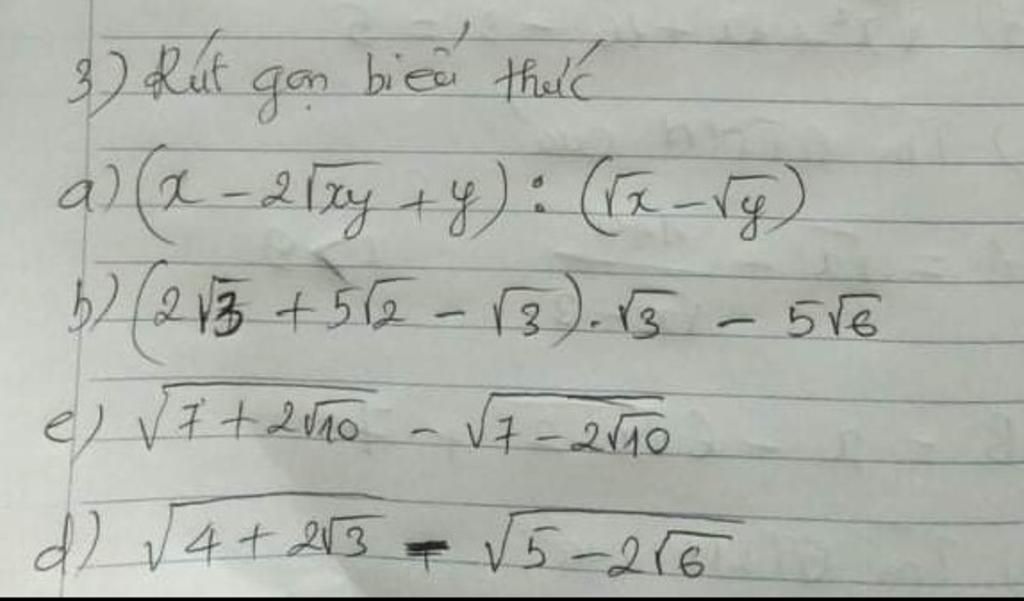 3) Rút gọn biểu thức
a) (x - 2√xy + y) : (√x - √y)
b) (2√3 + 5√2 - √3) . √3 - 5√6
c) √(7 + 2√10) - √(7 - 2√10)
d) √(4 + 2√3) - √(5 - 2√6)